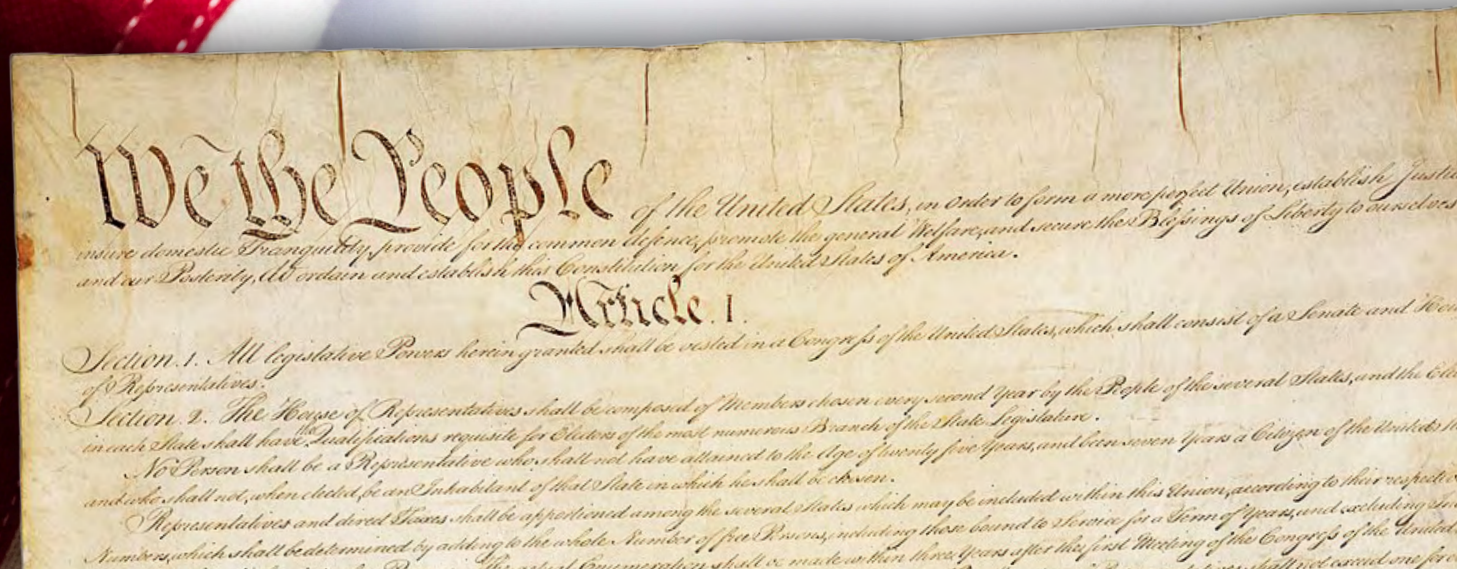 We the People of the United States, in Order to form a more perfect Union, establish Justic
insure domestic Tranquility, provide for the common defence, promote the general Welfare, and secure the Blessings of Liberty to ourselves
and our Posterity, do ordain and establish this Constitution for the United States of America.
Article. I.
Section. 1. All legislative Powers herein granted shall be vested in a Congress of the United States, which shall consist of a Senate and Hou
of Representatives.
Section. 2. The House of Representatives shall be composed of Members chosen every second Year by the People of the several States, and the Elec
in each State shall have the Qualifications requisite for Electors of the most numerous Branch of the State Legislature.
No Person shall be a Representative who shall not have attained to the Age of twenty five Years, and been seven Years a Citizen of the United
and who shall not, when elected, be an Inhabitant of that State in which he shall be chosen.
Representatives and direct Taxes shall be apportioned among the several States which may be included within this Union, according to their respectiv
Numbers, which shall be determined by adding to the whole Number of free Persons, including those bound to Service for a Term of Years, and excluding
actual Enumeration shall be made within three Years after the first Meeting of the Congress of the United
shall not exceed one for